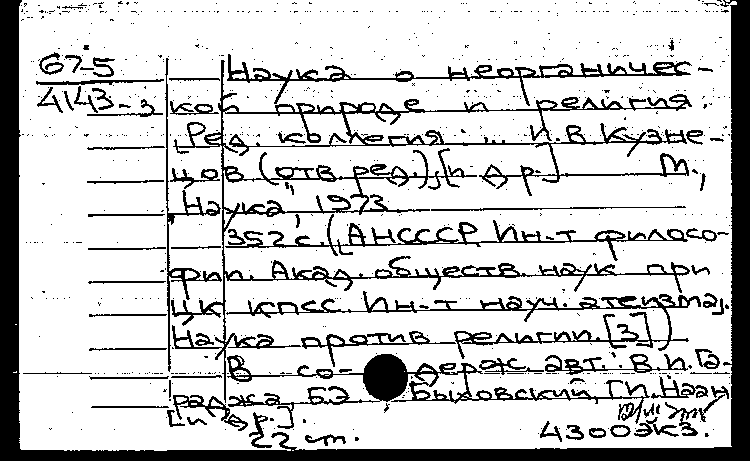 67-5
4143-3
Наука о неорганичес-
кой природе и религия.
[Ред. коллегия: ... И.В. Кузне-
цов (отв. ред.), [и др.]. М.,
"Наука", 1973.
352 с. ([АН СССР. Ин-т филосо-
фии. Акад. обществ. наук при
ЦК КПСС. Ин-т науч. атеизма].
Наука против религии. [3])
В содерж. авт.: В.И. Га-
раджа, Б.Э. Быховский, Г.И. Наан
[и др.].
22 см. 4300 экз.